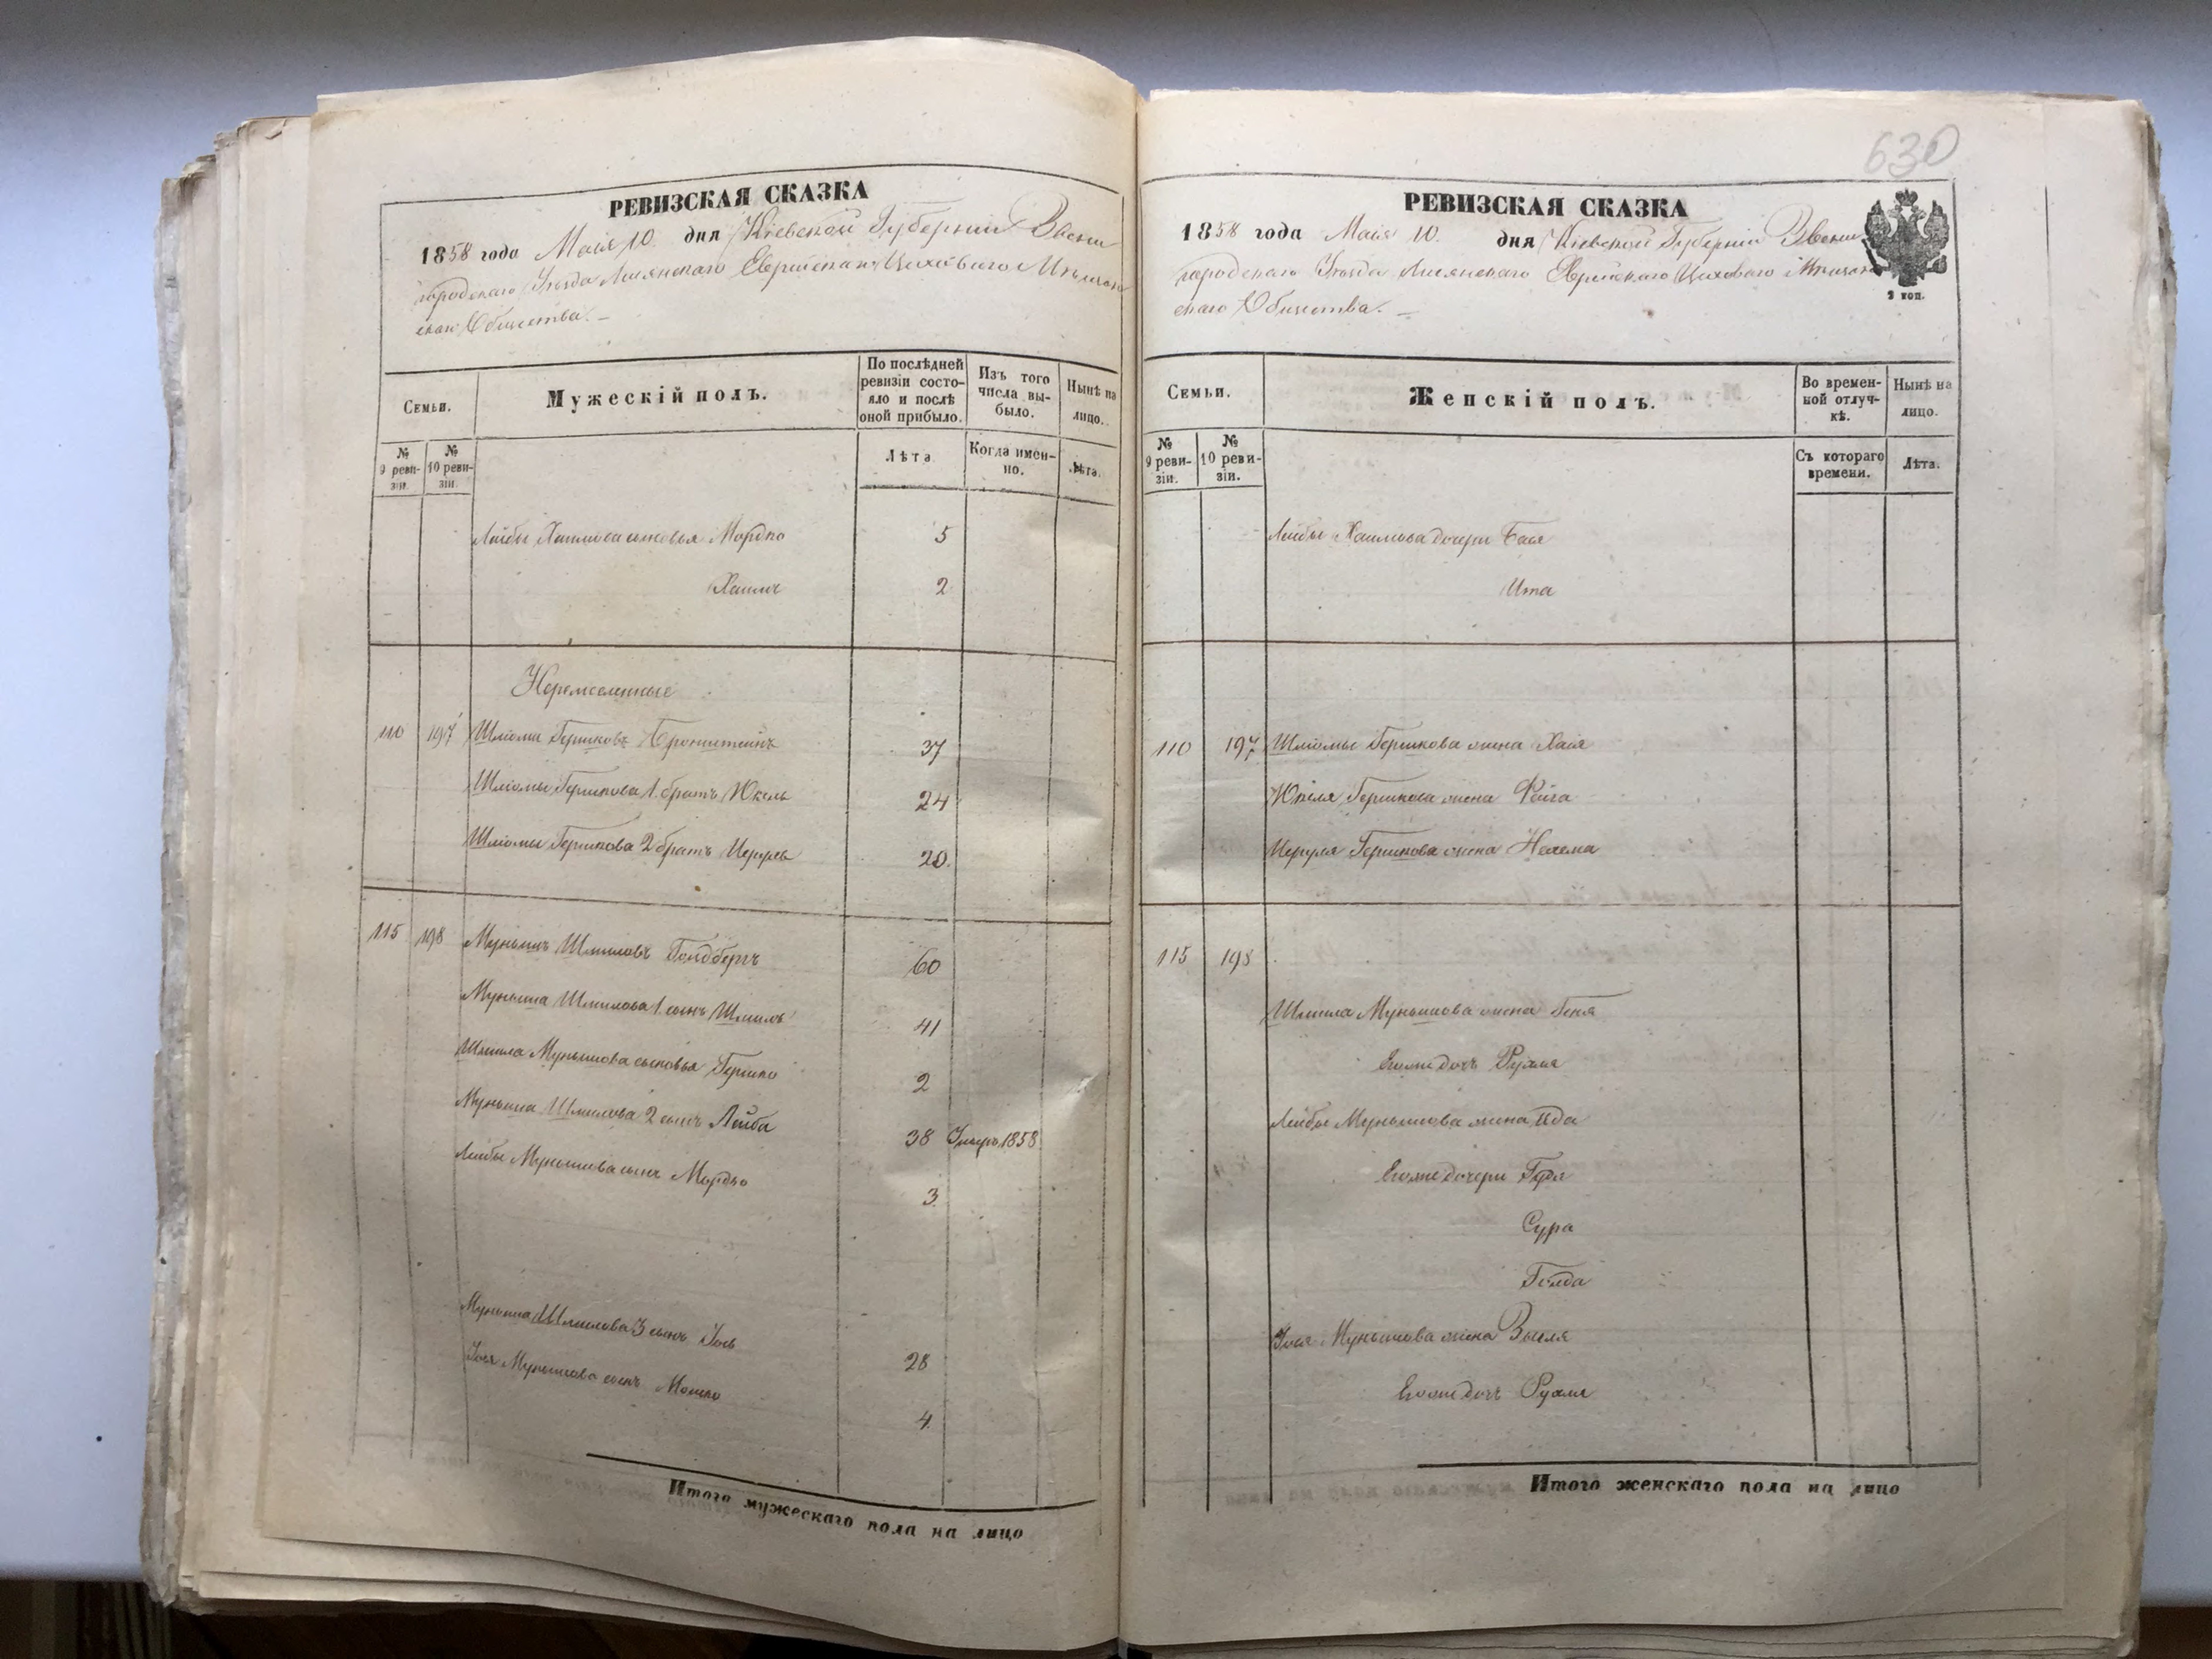 630
РЕВИЗСКАЯ СКАЗКА
1858 года Маія 10. дня Кіевской Губерніи Звени
городскаго Уѣзда Лисянскаго Еврейскаго Цеховаго Мѣщан
скаго Общества. –
Семьи.
Мужескій полъ.
По послѣдней ревизіи состояло и послѣ оной прибыло.
Изъ того числа выбыло.
Нынѣ на лицо.
№ 9 ревизіи.
№ 10 ревизіи.
Лѣта
Когда именно.
Лѣта.
Лейбы Хаимова сыновья Мордко 5
Хаимъ 2
110 197 Шліомы Гершковъ Бронштейнъ 37
Шліомы Гершкова 1. братъ Юкель 24
Шліомы Гершкова 2 братъ 20.
115 198 Муньишъ Шмиловъ Голдбергъ 60
Муньиша Шмилова 1. сынъ Шмиль 41
Шмиля Муньишова сыновья Гершко 2
Муньиша Шмилова 2 сынъ Лейба 38 1858
Лейбы Муньишова сынъ Мордко 3.
Муньиша Шмилова 3 сынъ Іось 28
Іося Муньишова сынъ Мошко 4.
Итого мужескаго пола на лицо
РЕВИЗСКАЯ СКАЗКА
1858 года Маія 10. дня Кіевской Губерніи Звени
городскаго Уѣзда Лисянскаго Еврейскаго Цеховаго Мѣщан
скаго Общества. –
3 коп.
Семьи.
Женскій полъ.
Во временной отлучкѣ.
Нынѣ на лицо.
№ 9 ревизіи.
№ 10 ревизіи.
Съ котораго времени.
Лѣта.
Лейбы Хаимова дочери Бася
Ита
110 197 Шліомы Гершкова жена Хая
Юкеля Гершкова жена Фейга
Гершкова жена Нехема
115 198
Шмиля Муньишова жена Геня
Егоже дочь Рухля
Лейбы Муньишова жена Ида
Егоже дочери
Сура
Голда
Іося Муньишова жена
Егоже дочь Рухля
Итого женскаго пола на лицо